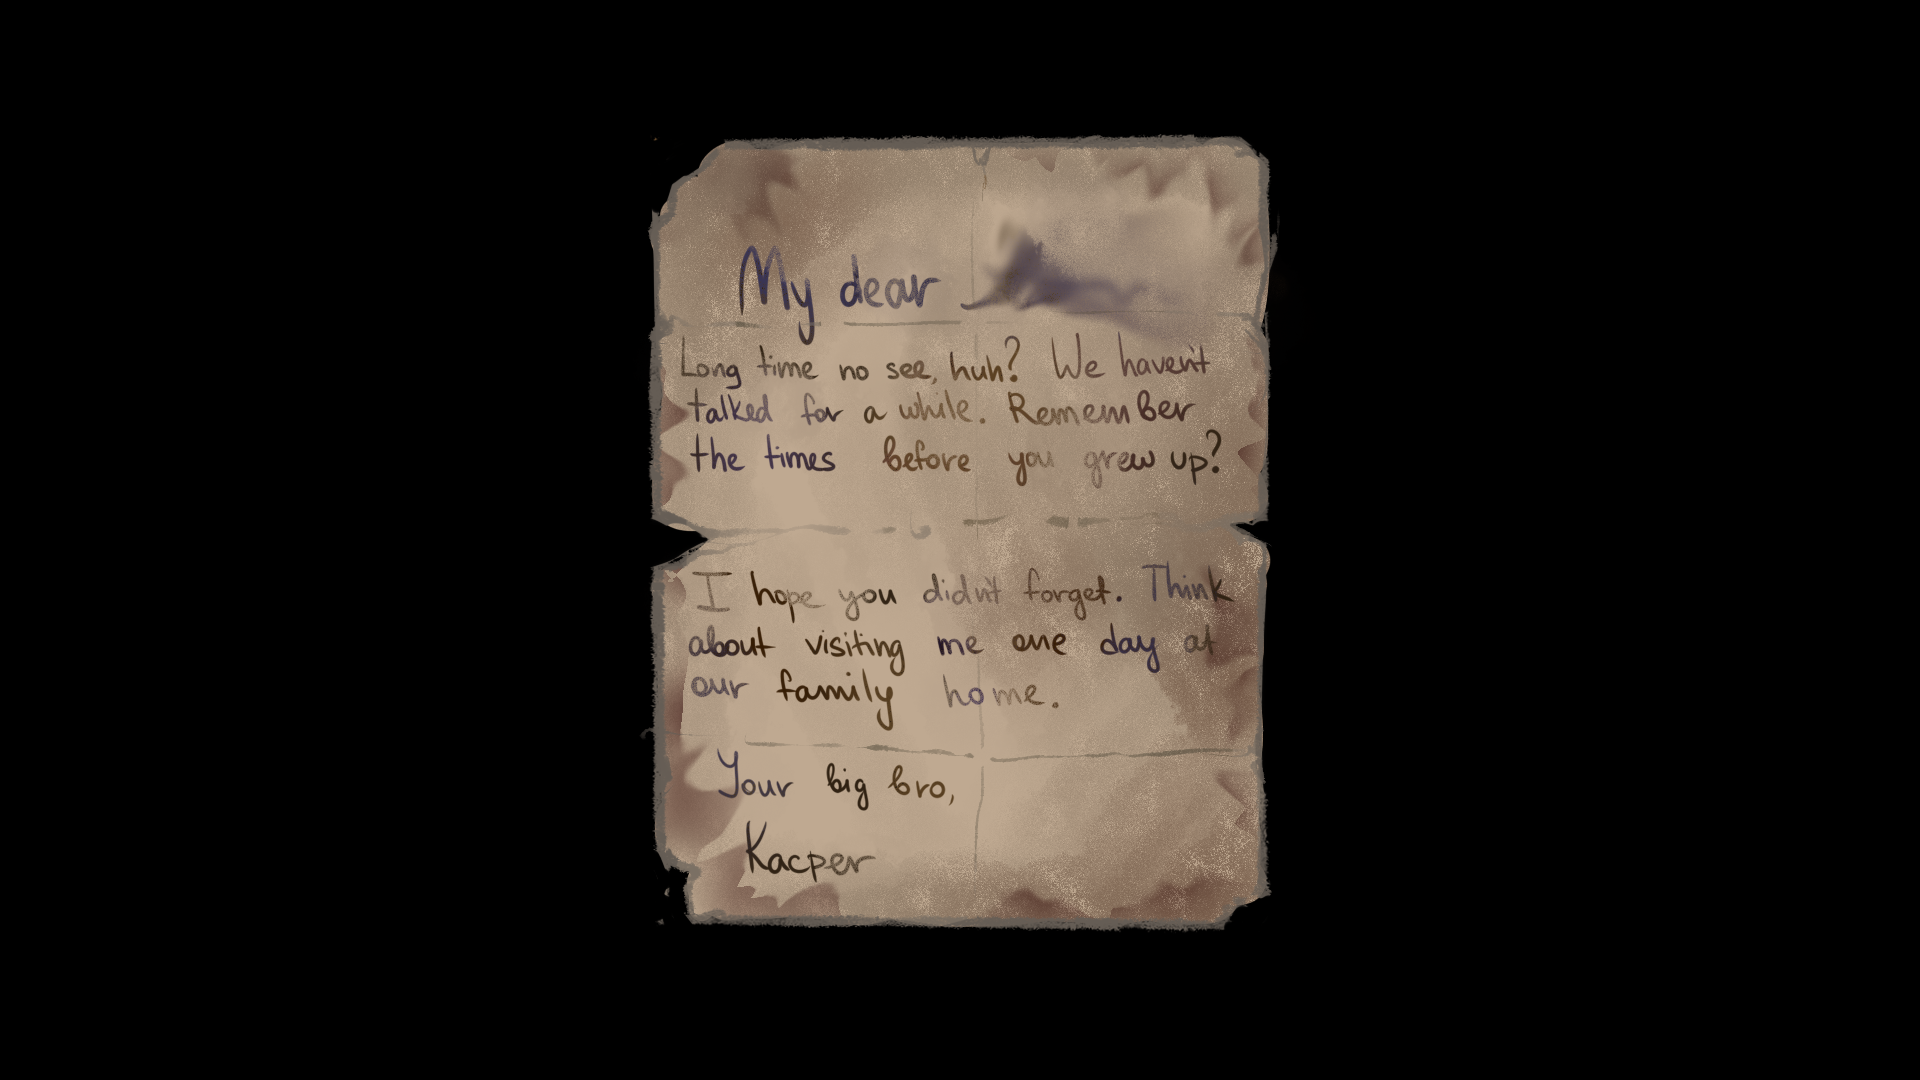 My dear
Long time no see, huh? We haven't
talked for a while. Remember
the times before you grew up?
I hope you didn't forget. Think
about visiting me one day at
our family home.
Your big bro,
Kacper